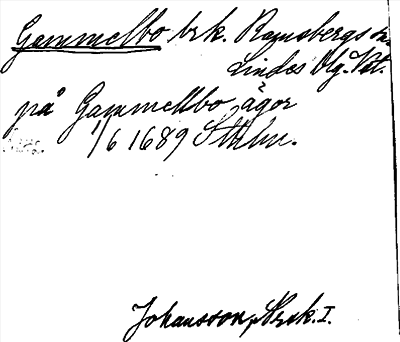 Gammelbo brk. Ramsbergs sn.
Lindes Olg. Vstm.
på Gammelbo ägor
1/6 1689 Sthlm.
Johansson, Nrk. I.